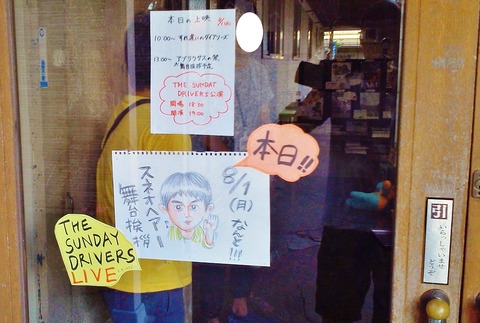 本日の上映 8/1(月)
10:00〜 すれ違いのダイアリーズ
13:00〜 アブラクサスの祭
舞台挨拶予定
THE SUNDAY
DRIVERS公演
開場 18:30
開演 19:00
本日!!
8/1(月)
なんと!!!
スネオヘアー
舞台挨拶
THE
SUNDAY
DRIVERS
LIVE
引
いらっしゃいませ
どうぞ